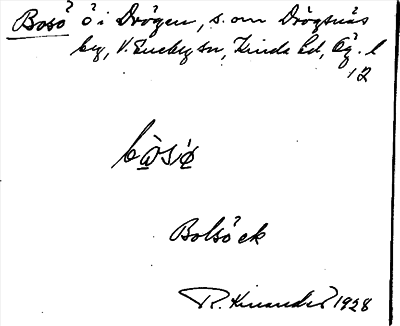 Bosö ö i Drögen, s. om Drögsnäs
by, V. Eneby sn, Kinda hd, Ög. l
12
bo̱si̱ø
Bolsö ek
R. Kinander 1928